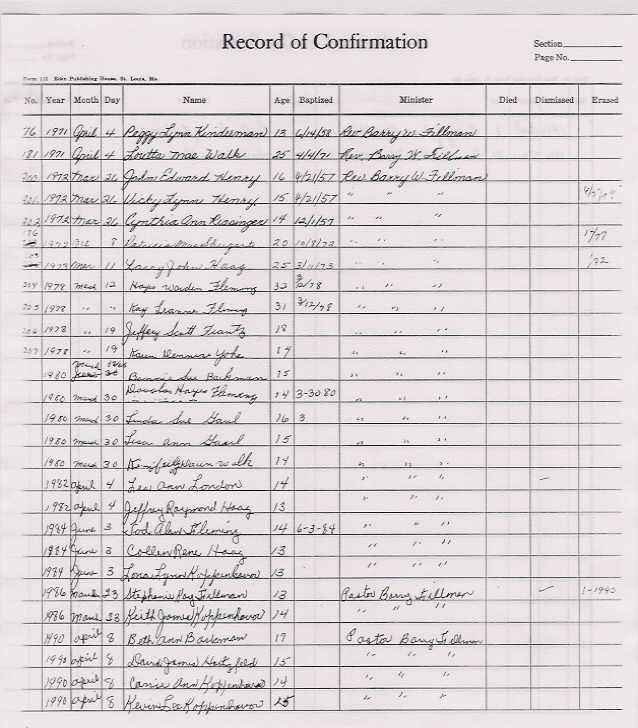 Record of Confirmation
Section
Page No.
Form 112 Eden Publishing House, St. Louis, Mo.
No. Year Month Day Name Age Baptized Minister Died Dismissed Erased
76 1971 April 4 Peggy Lynn Kinderman 13 6/14/58 Rev Barry W. Fillman
181 1971 April 4 Loretta Mae Walk 25 4/4/71 Rev. Barry W. Fillman
200 1972 Mar 26 John Edward Henry 16 4/21/57 Rev Barry W. Fillman
201 1972 Mar 26 Vicky Lynne Henry 15 4/21/57 " " "
202 1972 Mar 26 Cynthia Ann 14 12/1/57 " " "
176
8 Patricia Mae 20 10/8/72 " " " 1/77
203
1973 Mar 11 Larry John Haag 25 3/11/73 " " " 1/22
204 1978 Mar 12 Hayes Warden Fleming 32 3/12/78 " " "
205 1978 " " Kay Leanne Fleming 31 3/12/78 " " "
206 1978 " 19 Jeffrey Scott Frantz 18 " " "
207 1978 " 19 Karen 14 " " "
1980 30 Bonnie Sue Barkman 15 " " "
1980 March 30 Douglas Hayes Fleming 14 3-30 80 " " "
1980 March 30 Linda Sue Gaul 16 3 " " "
1980 March 30 Lisa Ann Gaul 15 " " "
1980 March 30 Walk 14 " " "
1982 April 4 Lee Ann London 14 " " " —
1982 April 4 Jeffrey Raymond Haag 13 " " "
1984 June 3 Tod Alan Fleming 14 6-3-84 " " "
1984 June 3 Colleen Rene Haag 13 " " "
1984 June 3 Lona Lynn Koppenhaver 13 " " "
1986 March 23 Stephenie Kay Fillman 13 Pastor Barry Fillman — 1-1990
1986 March 23 Keith James Koppenhaver 14 " " "
1990 April 8 Beth Ann Barkman 17 Pastor Barry Fillman
1990 April 8 David James 15 " " "
1990 April 8 Carrie Ann Koppenhaver 14 " " "
1990 April 8 Kevin Lee Koppenhaver 25 " " "